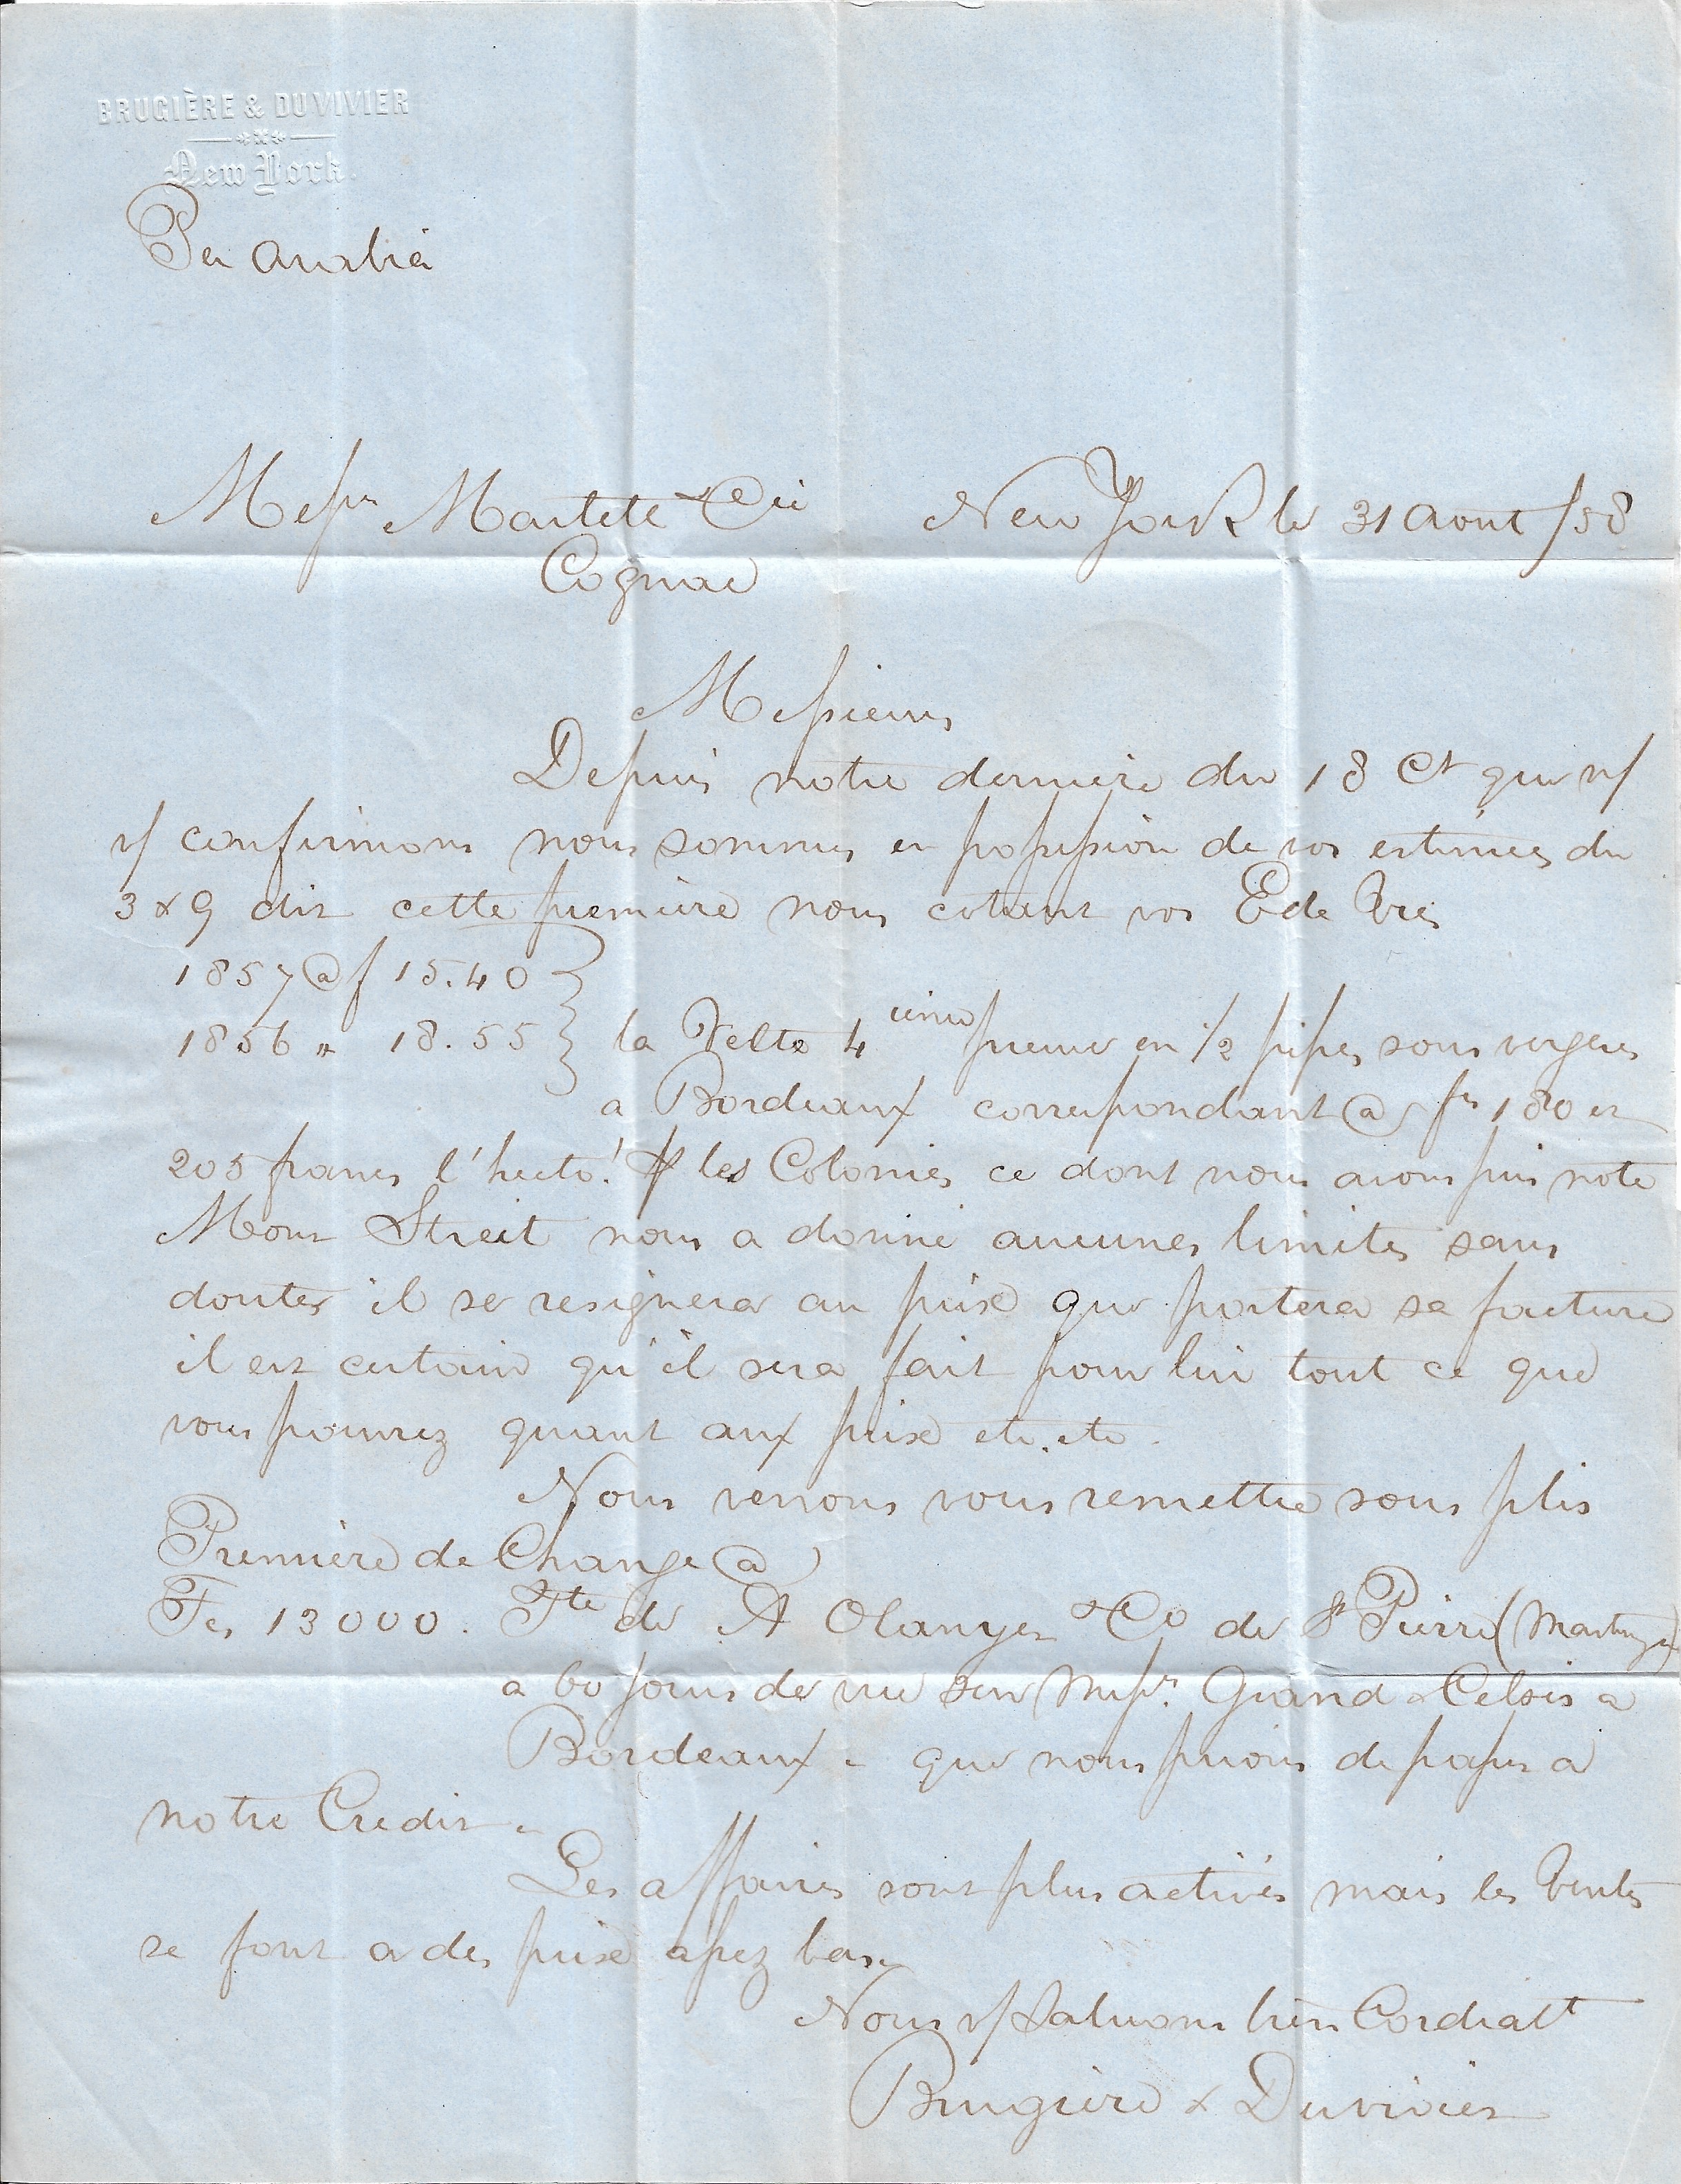 BRUGIÈRE & DUVIVIER
New York
Per Arabia
Messrs Martell & Cie New York le 31 Aout /58
Cognac
Messieurs
Depuis notre derniere du 18 Ct que n/
v/ confirmons nous sommes en possession de vos estimées du
3 & 9 dit cette premiere nous cotant vos E de Vies
1857 @ f 15.40
1856 " 18.55 la Velte 4 preuve en 1/2 pipes sous vergues
a Bordeaux correspondant @ frs 180 et
205 francs l'hecto! les Colonies ce dont nous avons pris note
Monr Streit nous a donné aucunes limites sans
doutes il se resignera au prix que portera sa facture
il est certain qu'il sera fait pour lui tout ce que
vous pourrez quant aux prix etc. etc.
Nous venons vous remettre sous plis
Premiere de Change @
Fcs 13000. Tte de A & Co de St Pierre (Martinique)
a 60 jours de vue sur Messrs. Grand & a
Bordeaux - que nous prions de passer a
notre Credit -
Les affaires sont plus actives mais les Ventes
se font a des prix assez bas
Nous v/ Saluons bien Cordialt
Brugiere & Duvivier